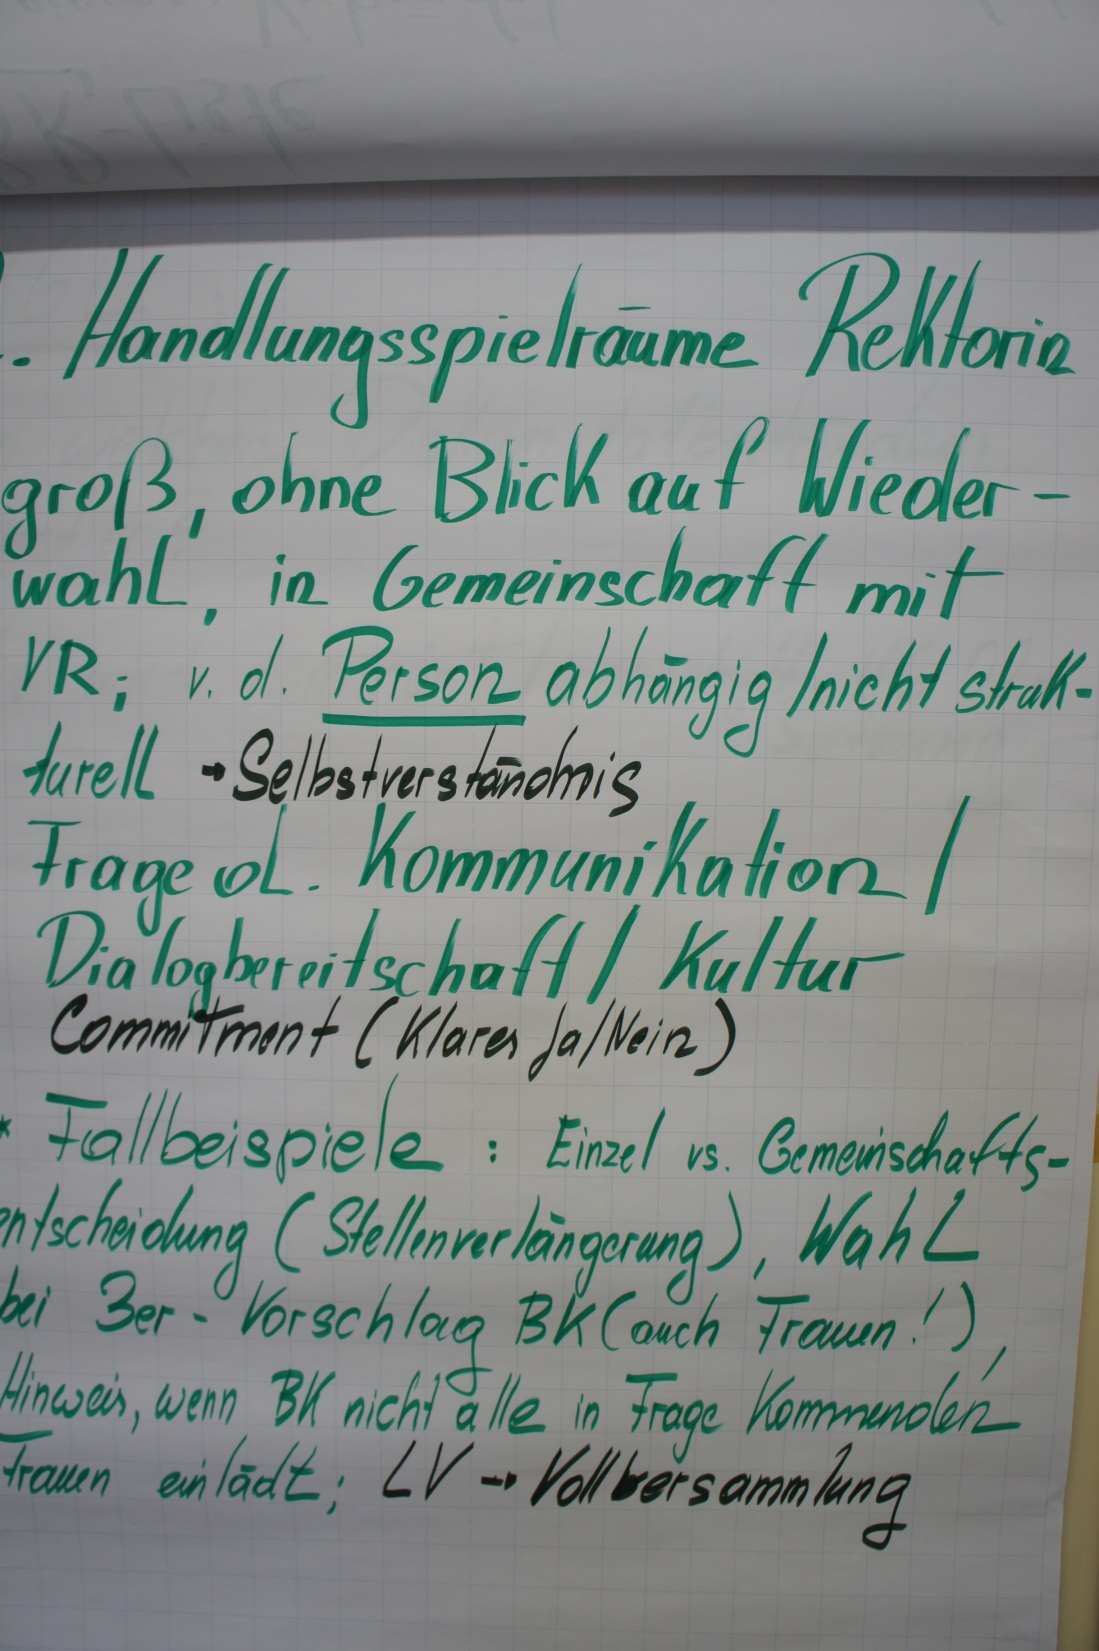 BR-Liste
. Handlungsspielräume Rektorin
groß, ohne Blick auf Wieder-
wahl, in Gemeinschaft mit
VR; v. d. Person abhängig / nicht struk-
turell → Selbstverständnis
Frage d. Kommunikation /
Dialogbereitschaft / Kultur
Commitment (Klares Ja/Nein)
* Fallbeispiele : Einzel vs. Gemeinschafts-
entscheidung (Stellenverlängerung), Wahl
bei 3er-Vorschlag BK (auch Frauen!),
Hinweis, wenn BK nicht alle in Frage Kommenden
Frauen einlädt; LV → Vollversammlung